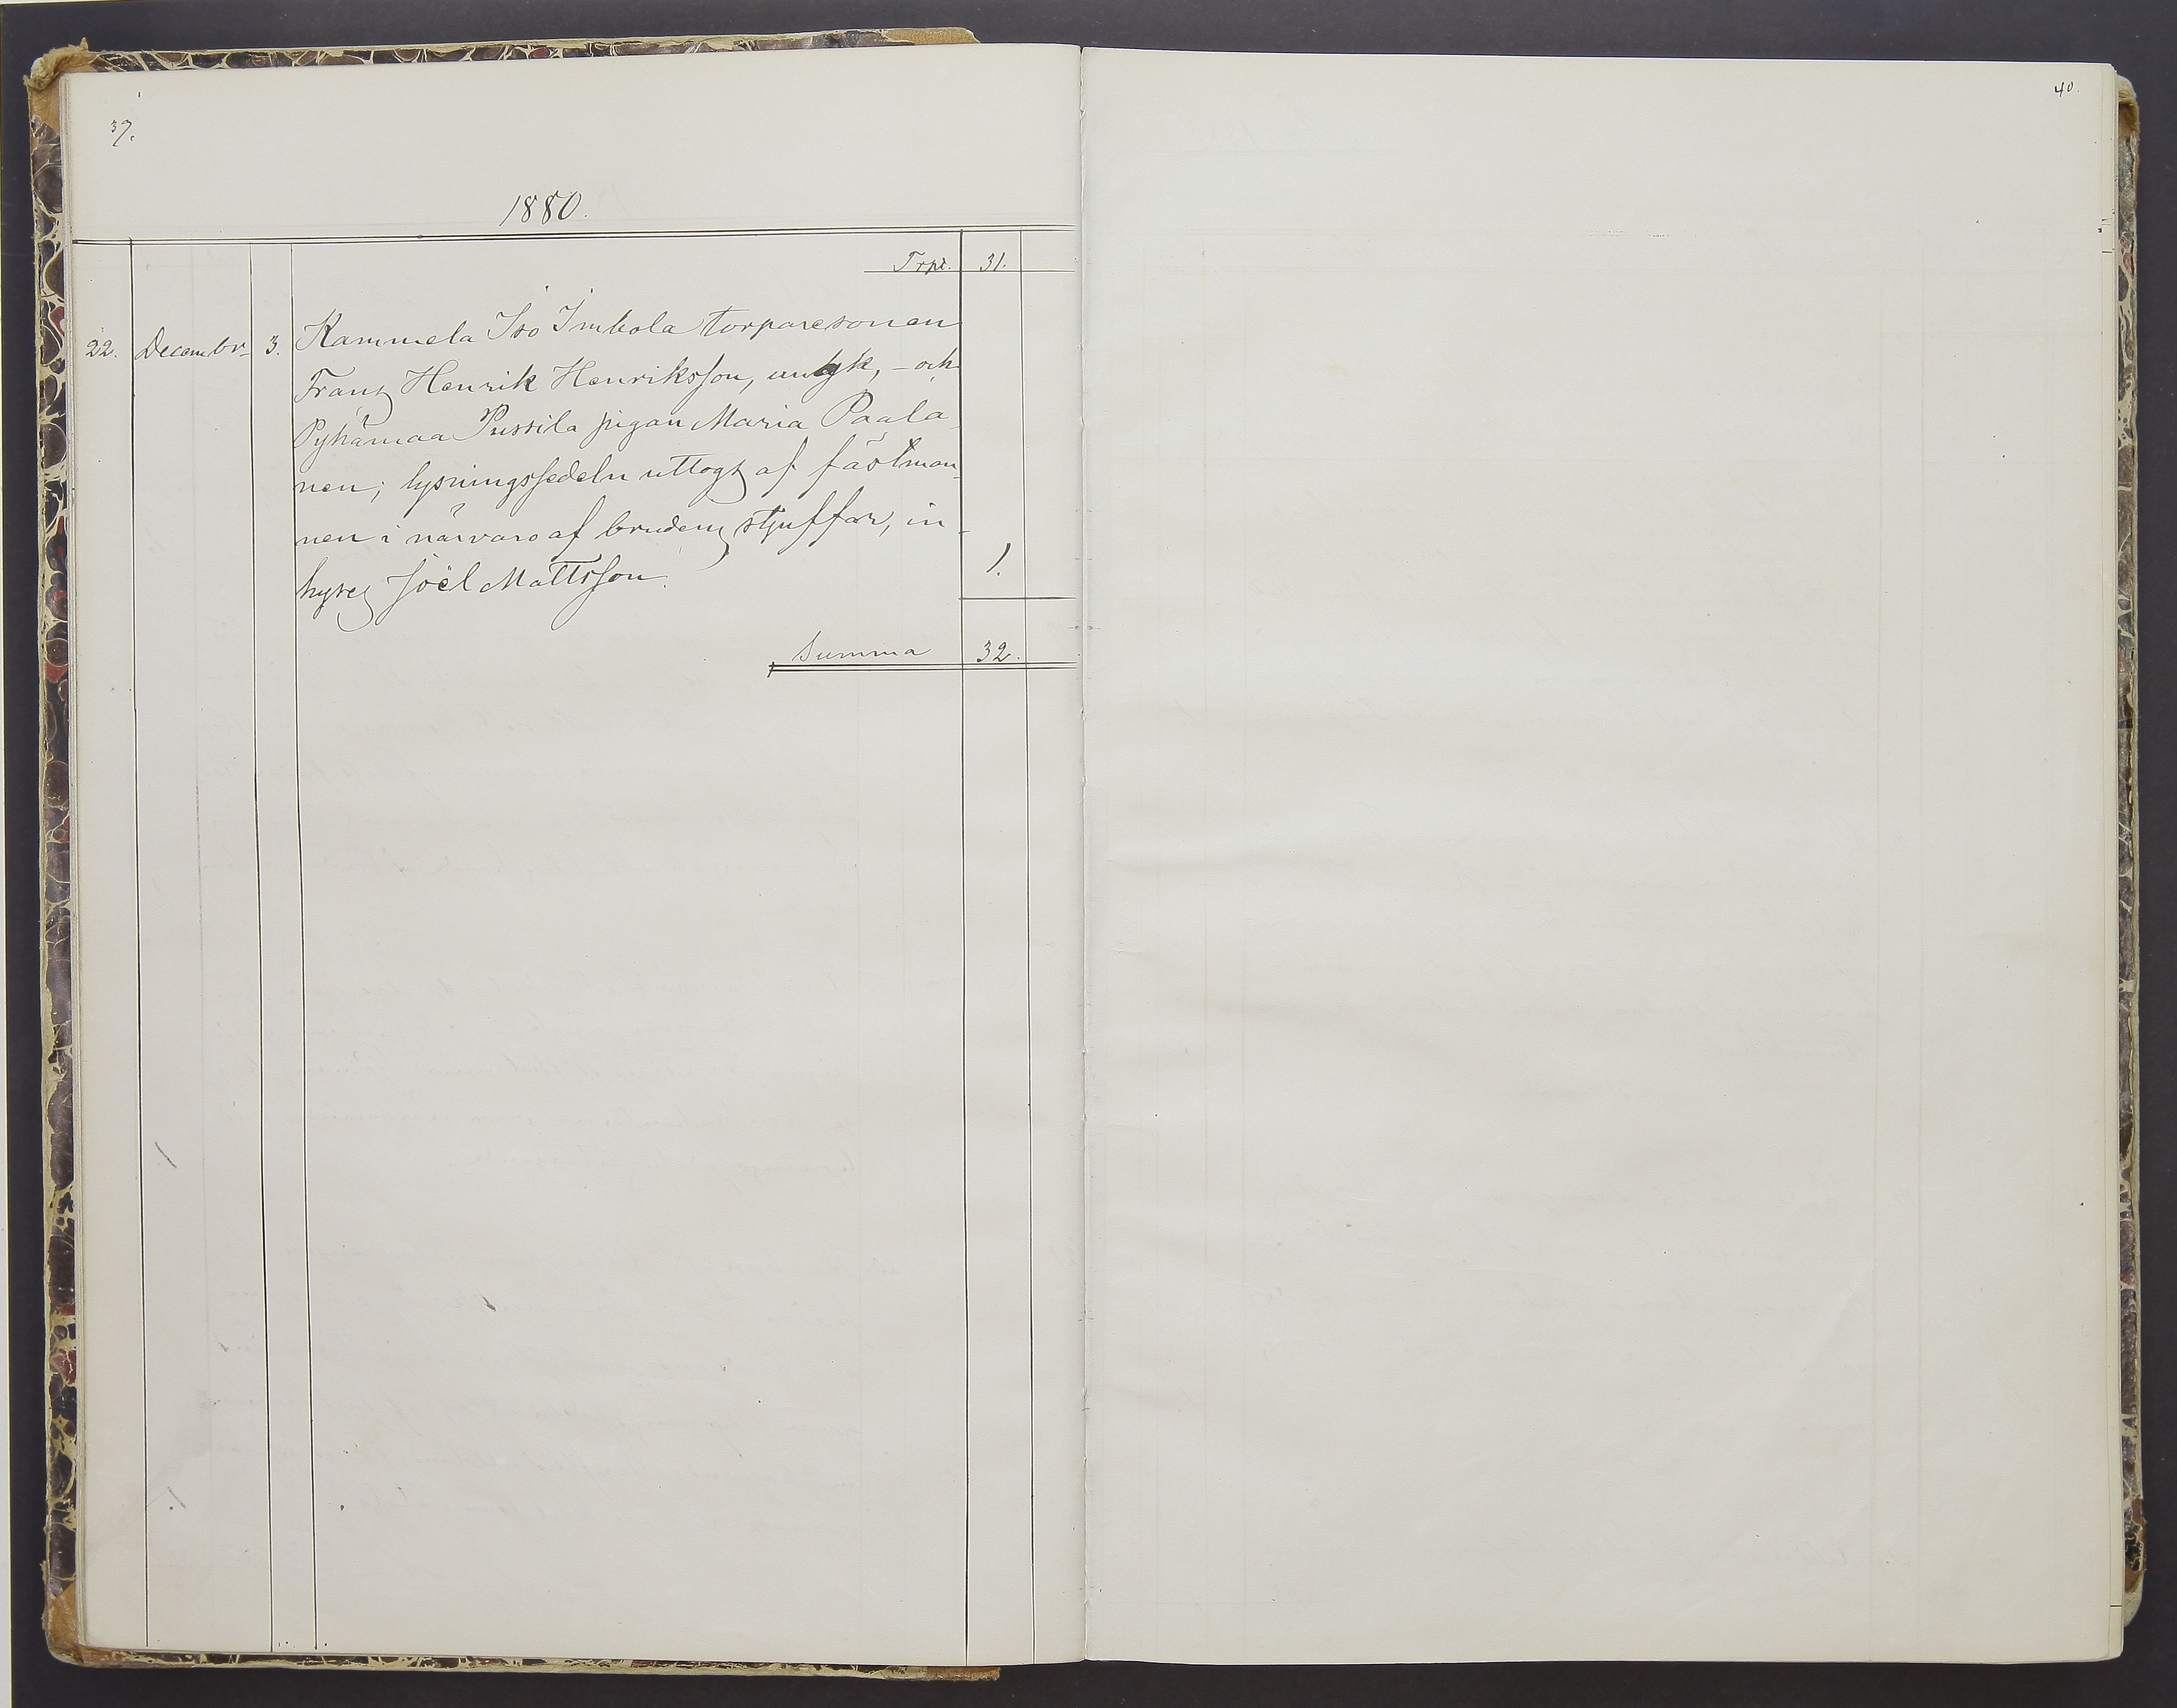 37.
40.
1880.
Trpt. 31.
22. Decembr. 3. Kammela Iso Imhola torparesonen
Franz Henrik Henriksson, unglk, – och
Pyhämaa Pussila pigan Maria Paala-
nen; lysningssedeln uttogs af fästman-
nen i närvaro af brudens stjuffar, in-
hyses Joël Mattsson. 1.
Summa 32.